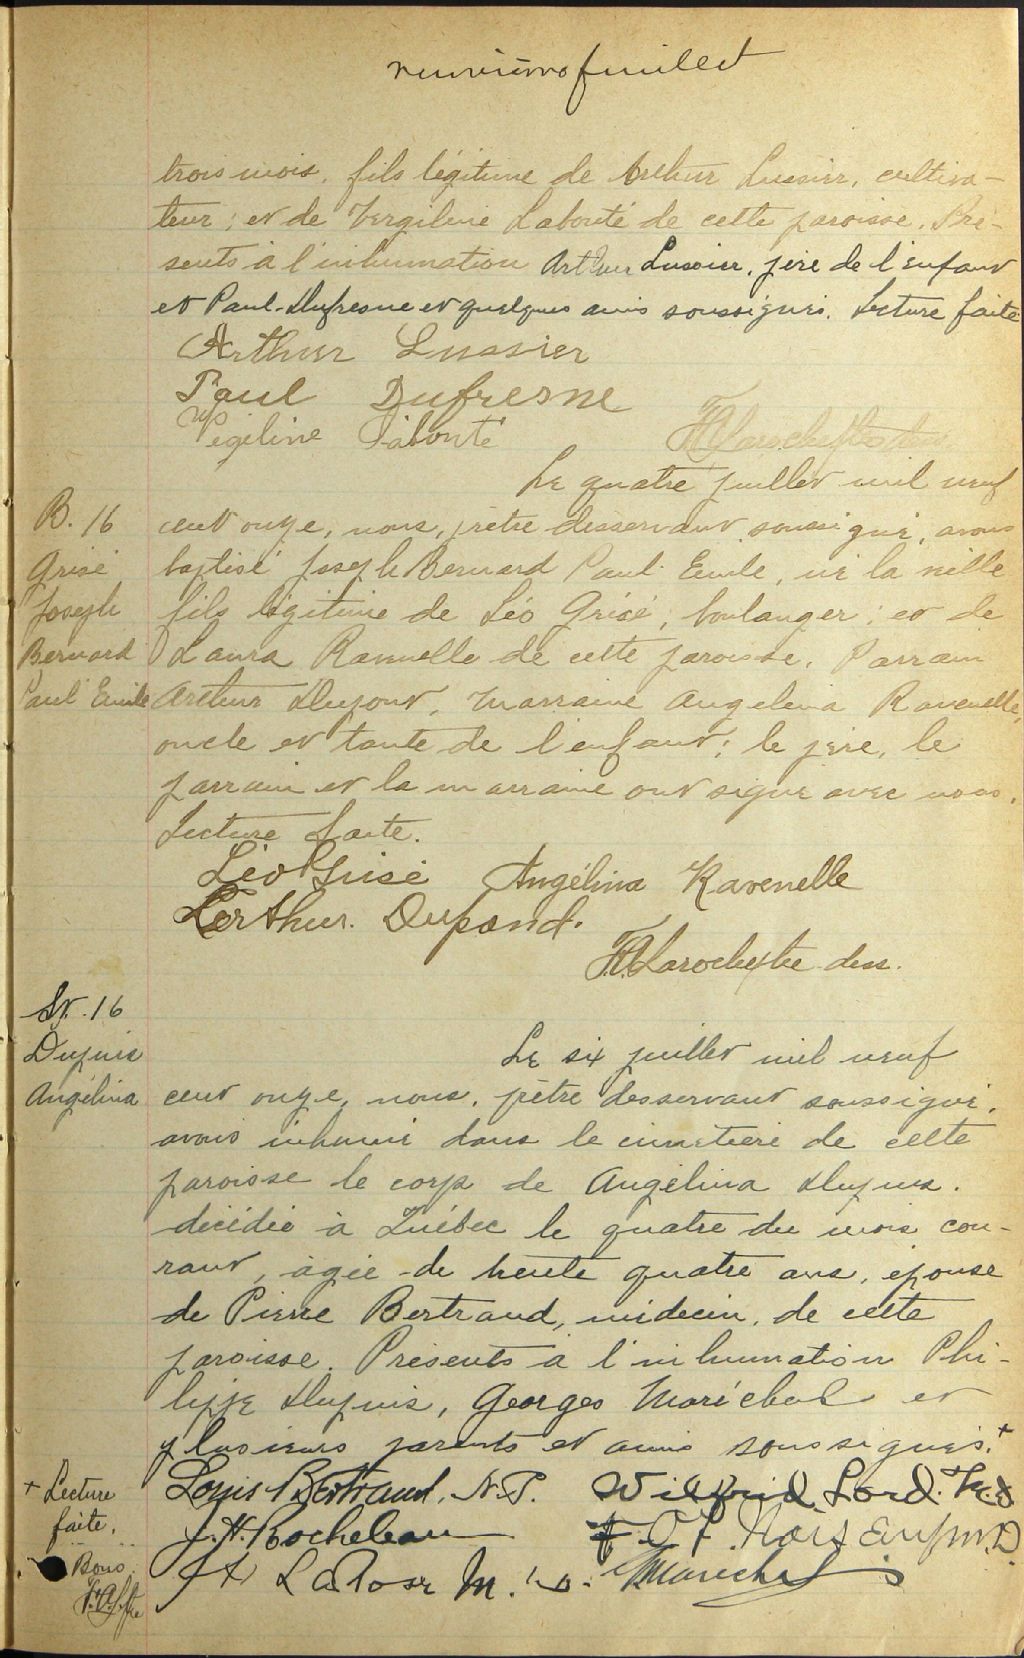 neuvième feuillet
trois mois, fils légitime de Arthur Lussier, cultiva-
teur; et de Vergiline Labonté de cette paroisse. Pré-
sents à l'inhumation Arthur Lussier, père de l'enfant
et Paul Dufresne et quelques amis soussignés. Lecture faite
Arthur Lussier
Paul Dufresne
Vigiline Labonté
Le quatre juillet mil neuf
B. 16
Grisé
Joseph
Bernard
Paul Emile
cent onze, nous, prêtre desservant soussigné, avons
baptisé Joseph Bernard Paul Emile, né la veille
fils légitime de Léo Grisé, boulanger; et de
Laura Ravenelle de cette paroisse. Parrain
Arthur Dupont, marraine Angelina Ravenelle,
oncle et tante de l'enfant; le père, le
parrain et la marraine ont signé avec nous.
Lecture faite.
Léo Grisé Angélina Ravenelle
Arthur Dupond.
Larochelle dess.
S. 16
Dupuis
Angélina
Le six juillet mil neuf
cent onze, nous, prêtre desservant soussigné,
avons inhumé dans le cimetière de cette
paroisse le corps de Angélina Dupuis,
décédée à Québec le quatre du mois cou-
rant, âgée de trente quatre ans, épouse
de Pierre Bertrand, médecin, de cette
paroisse. Présents à l'inhumation Phi-
lippe Dupuis, Georges Maréchal et
plusieurs parents et amis soussignés.+
+ Lecture
faite.
Bons
Louis Bertrand, N.P. Wilfrid Lord. M.D
J. H. Rocheleau
Marechal